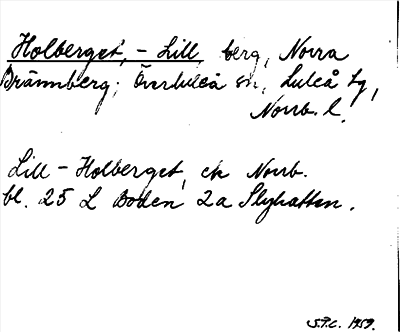 Holberget, - Lill, berg, Norra
Brännberg; Överluleå sn, Luleå tg,
Norrb. l.
Lill - Holberget, ek Norrb.
bl. 25 L Boden 2a Slyhatten.
S.P.C. 1959.